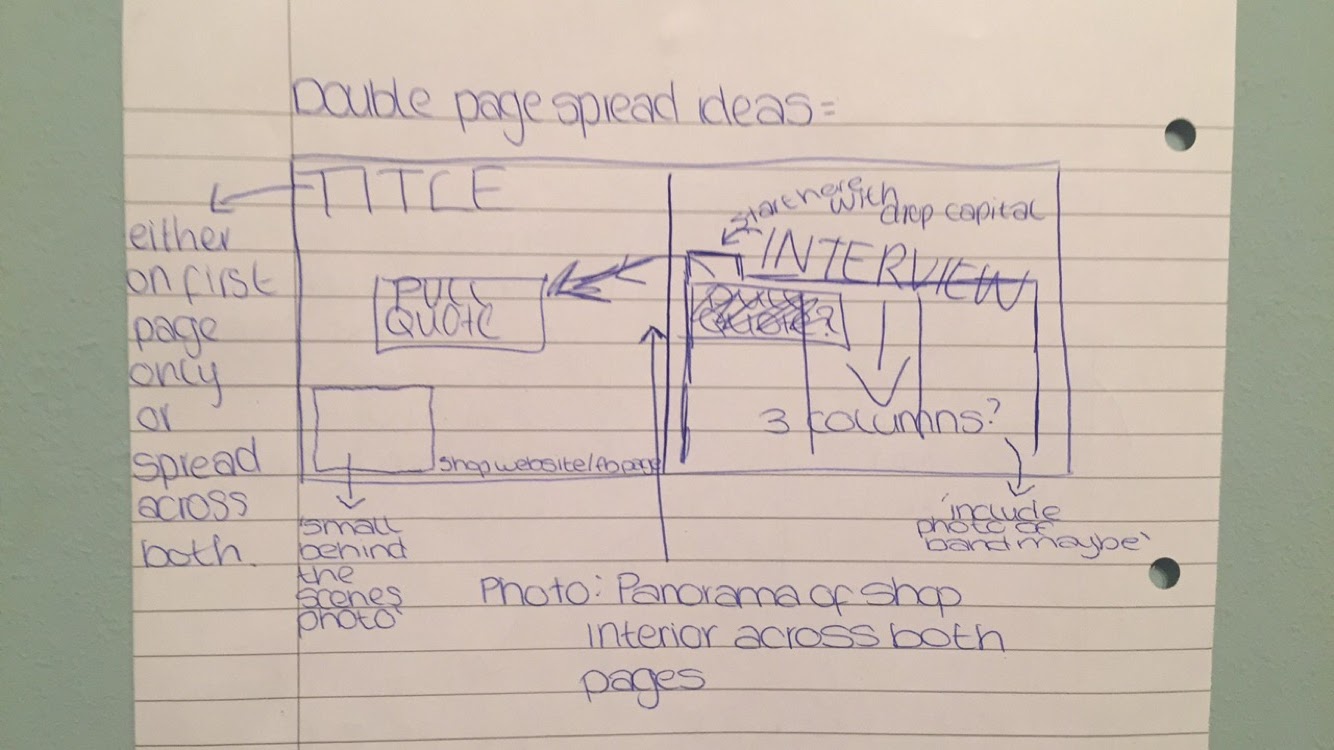 Double page spread ideas=
TITLE
either
on first
page
only
or
spread
across
both.
PULL
QUOTE
shop website/fb page
small
behind
the
scenes
photo
start here
with
drop capital
INTERVIEW
3 columns?
include
photo of
band maybe
Photo: Panorama of shop
interior across both
pages